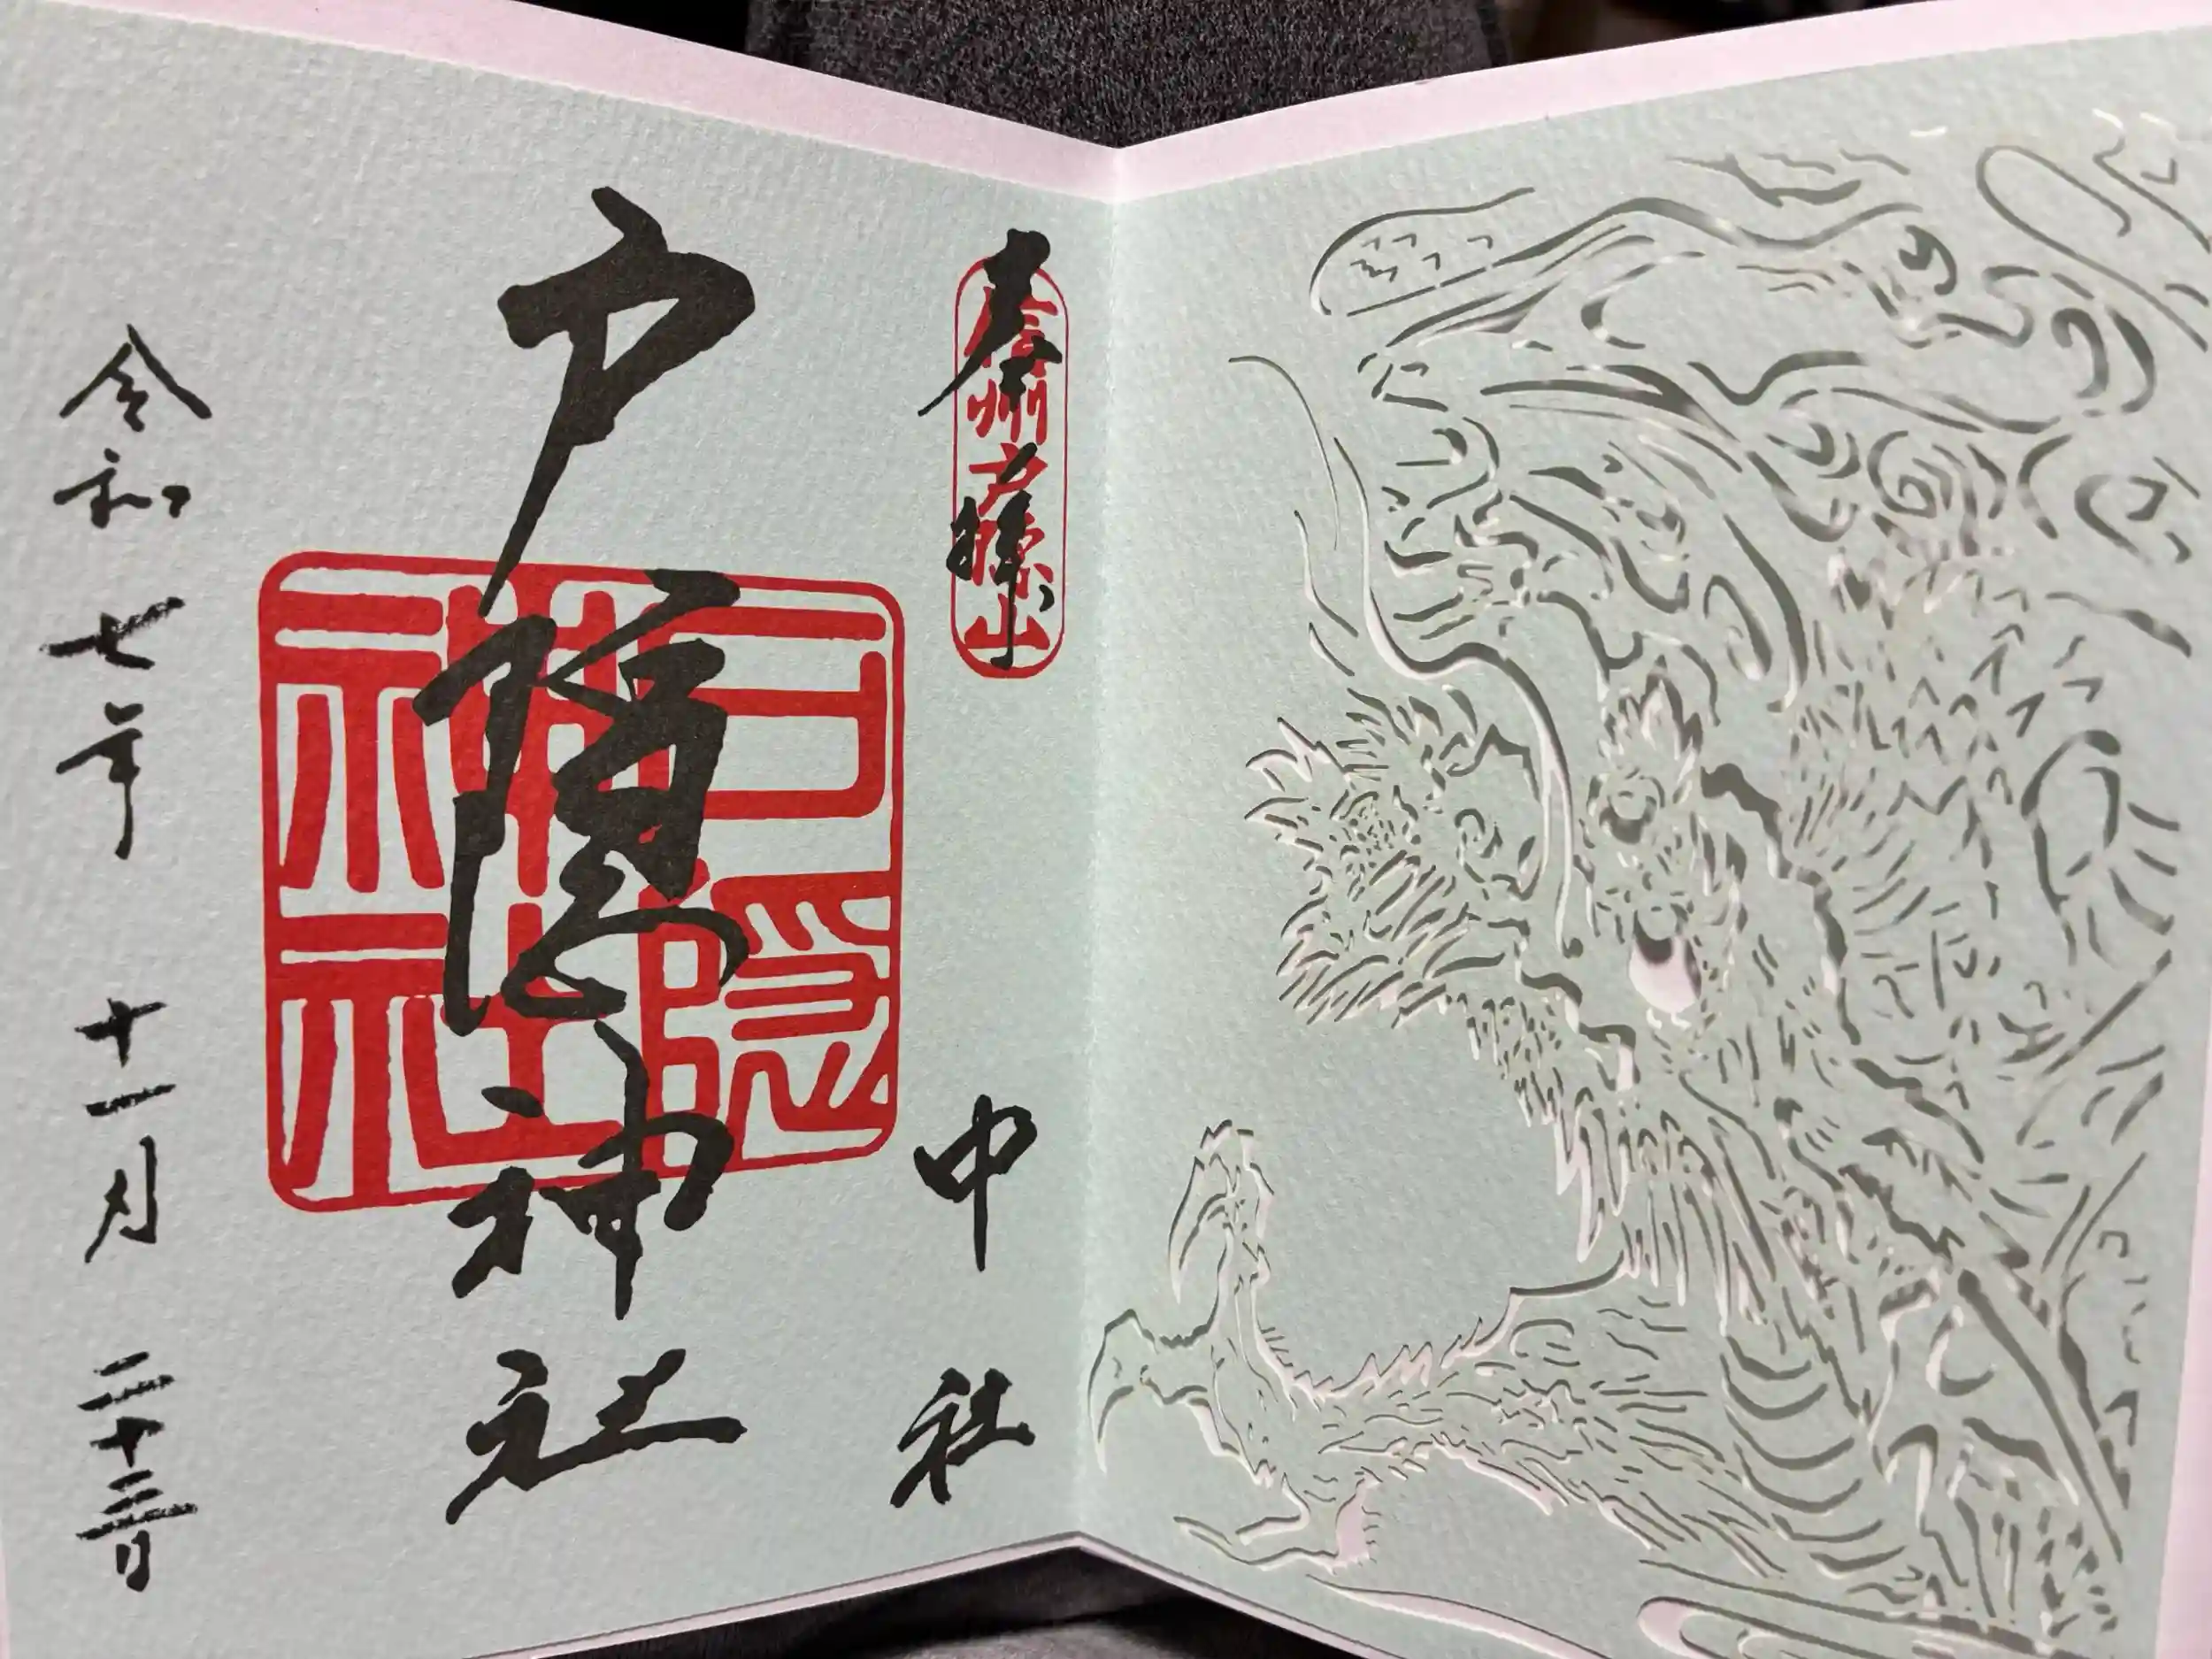 奉拝
信州戸隠山
中社
戸隠神社
戸隠神社
令和七年十一月二十三日